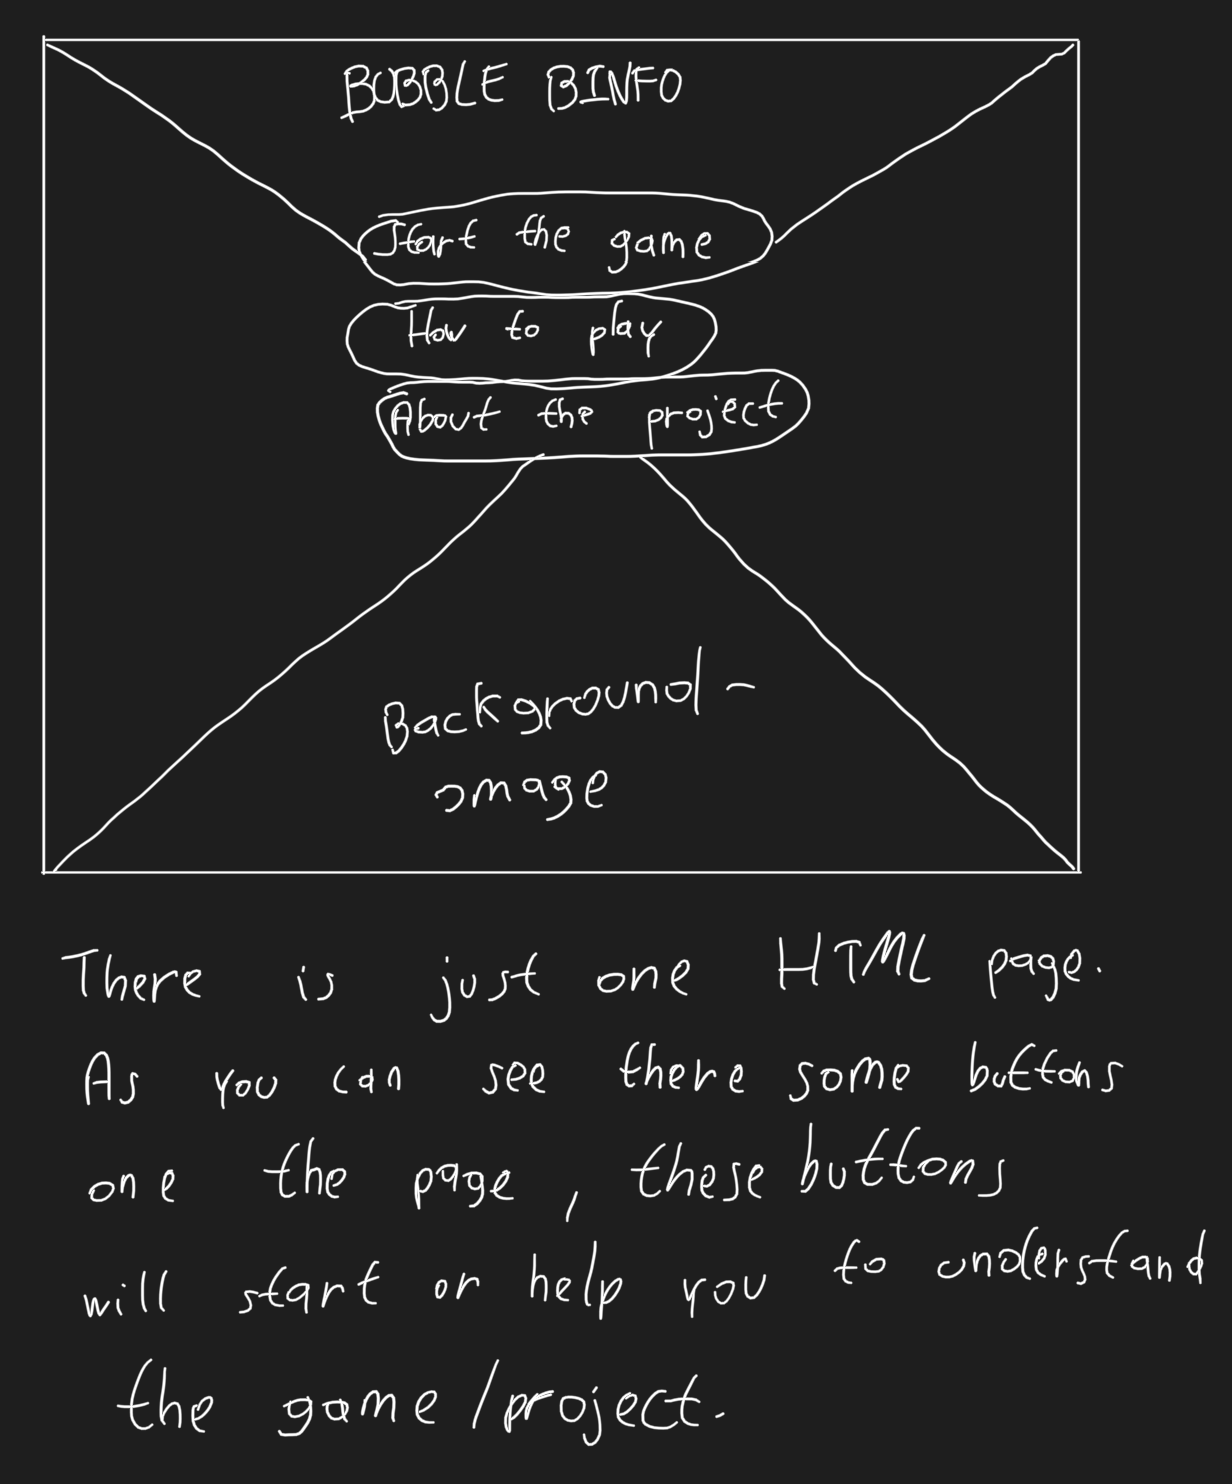 BUBBLE BINFO
Start the game
How to play
About the project
Background-
image
There is just one HTML page.
As you can see there some buttons
one the page, these buttons
will start or help you to understand
the game/project.